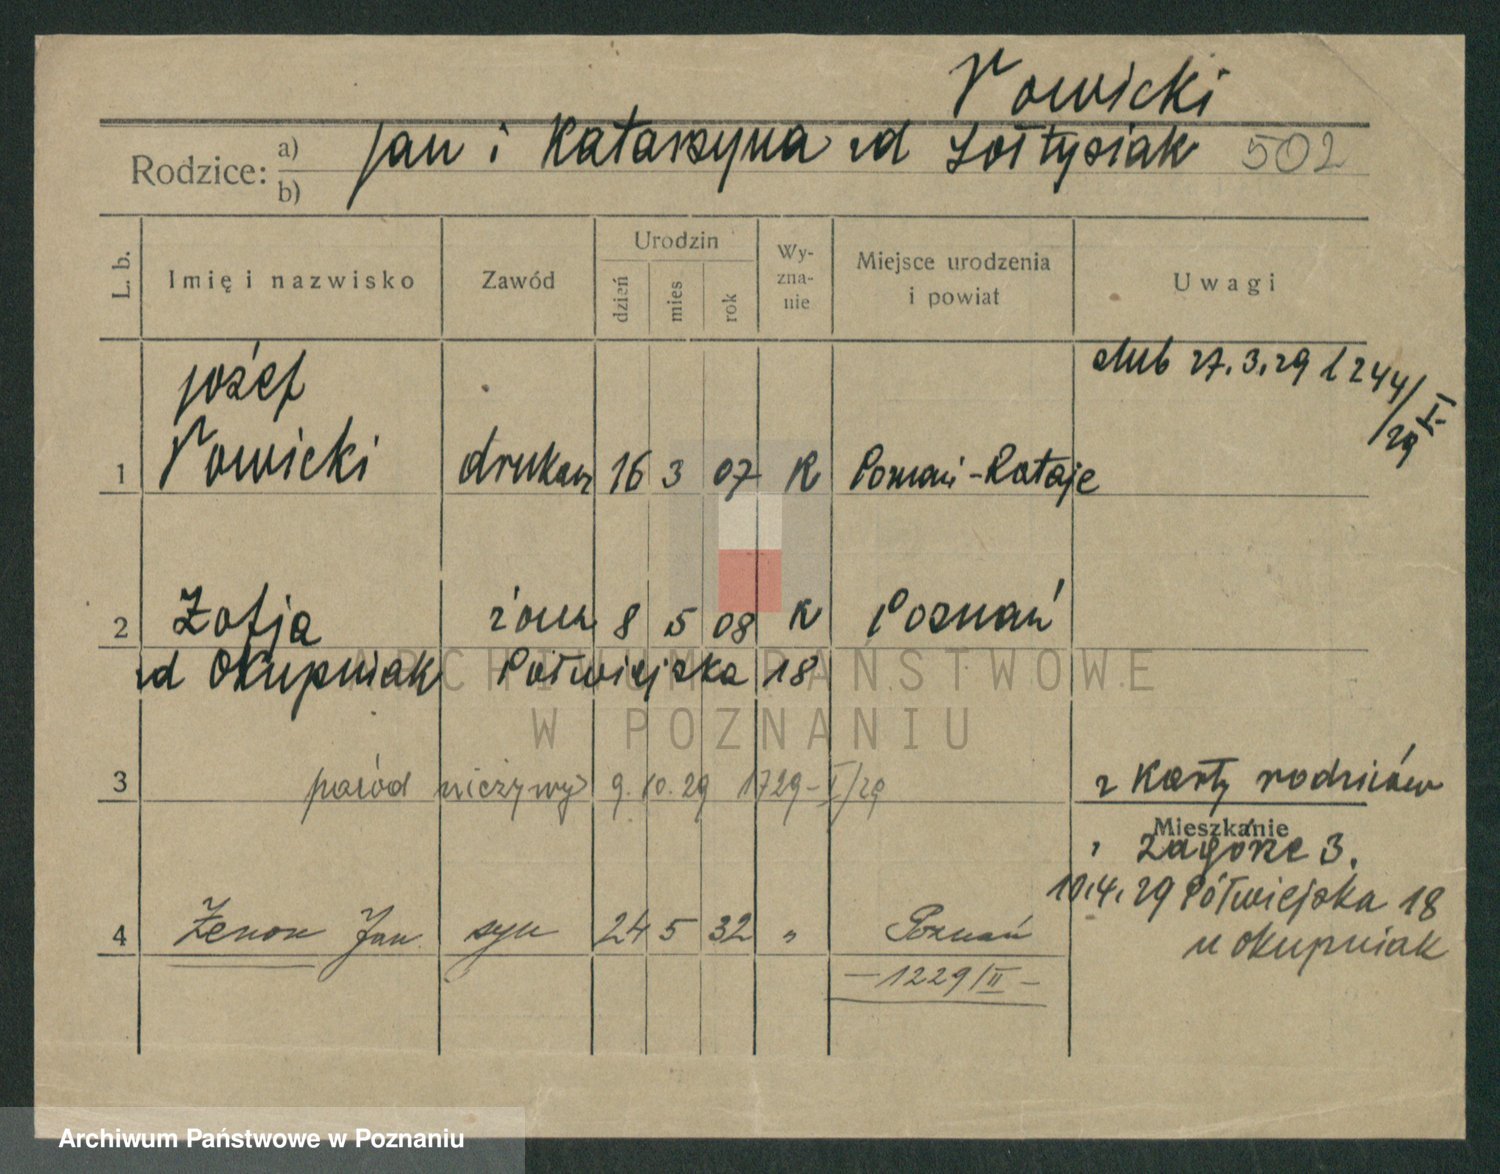 Nowicki
Rodzice: a) Jan i Katarzyna zd Sołtysiak 502
b)
L. b. Imię i nazwisko Zawód Urodzin dzień mies rok Wy-zna-nie Miejsce urodzenia i powiat Uwagi
ślub 27.3.29 l 244/I.29
Józef
1 Nowicki drukarz 16 3 07 K Poznań-Rataje
2 Zofja żona 8 5 08 K Poznań
zd Okupniak Półwiejska 18
3 poród nieżywy 9.10.29 1729-I/29 z karty rodziców
Mieszkanie
Zagórze 3.
10.4.29 Półwiejska 18
4 Zenon Jan syn 24 5 32 " Poznań
u Okupniak
-1229/II-
ARCHIWUM PAŃSTWOWE
W POZNANIU
Archiwum Państwowe w Poznaniu